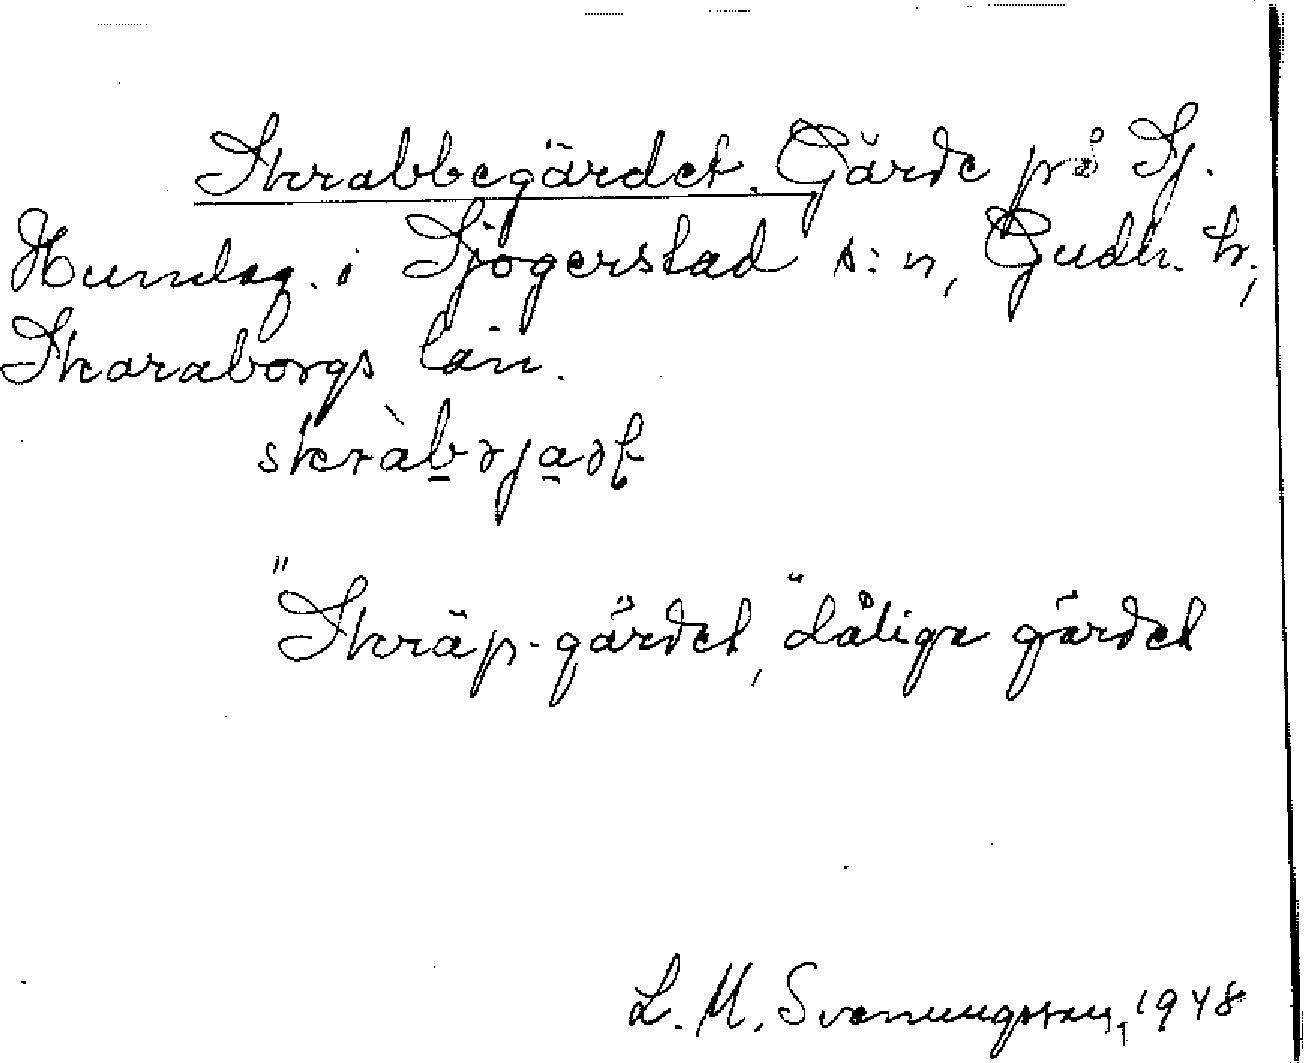 Skrabbegärdet. Gärde på Sj.
Hundsg. i Sjögerstad s:n, Gudh. h.,
Skaraborgs län.
"Skräp-gärdet", dåliga gärdet
L. M. Svenungsson, 1948